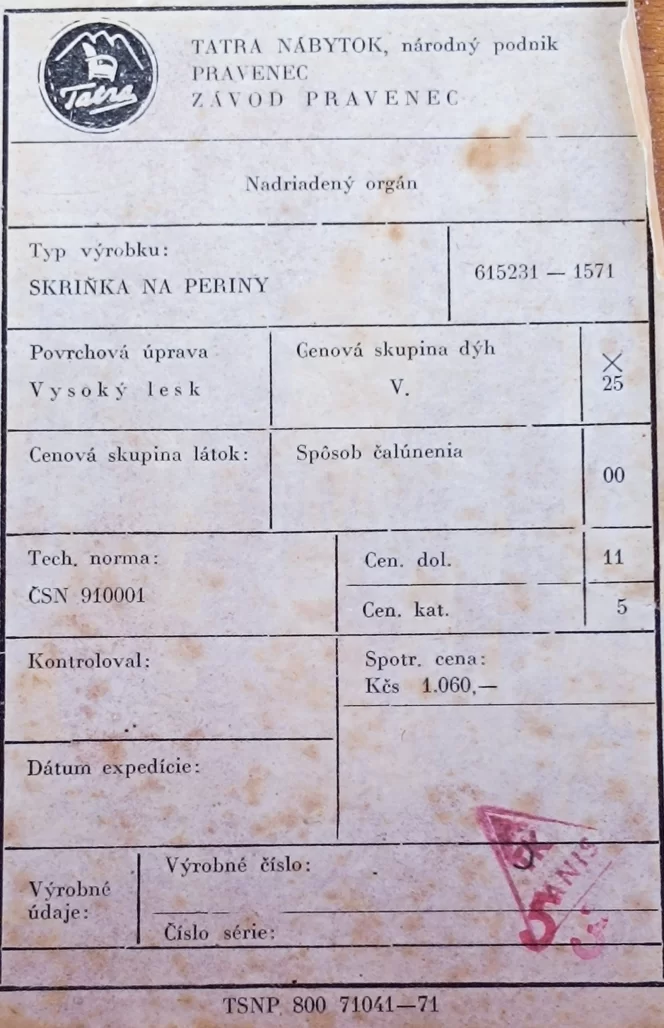 Tatra
TATRA NÁBYTOK, národný podnik
PRAVENEC
ZÁVOD PRAVENEC
Nadriadený orgán
Typ výrobku:
SKRIŇKA NA PERINY
615231 — 1571
Povrchová úprava
Vysoký lesk
Cenová skupina dýh
V.
X
25
Cenová skupina látok:
Spôsob čalúnenia
00
Tech. norma:
ČSN 910001
Cen. dol.
11
Cen. kat.
5
Kontroloval:
Spotr. cena:
Kčs 1.060,—
Dátum expedície:
Výrobné
údaje:
Výrobné číslo:
Číslo série:
TSNP 800 71041—71